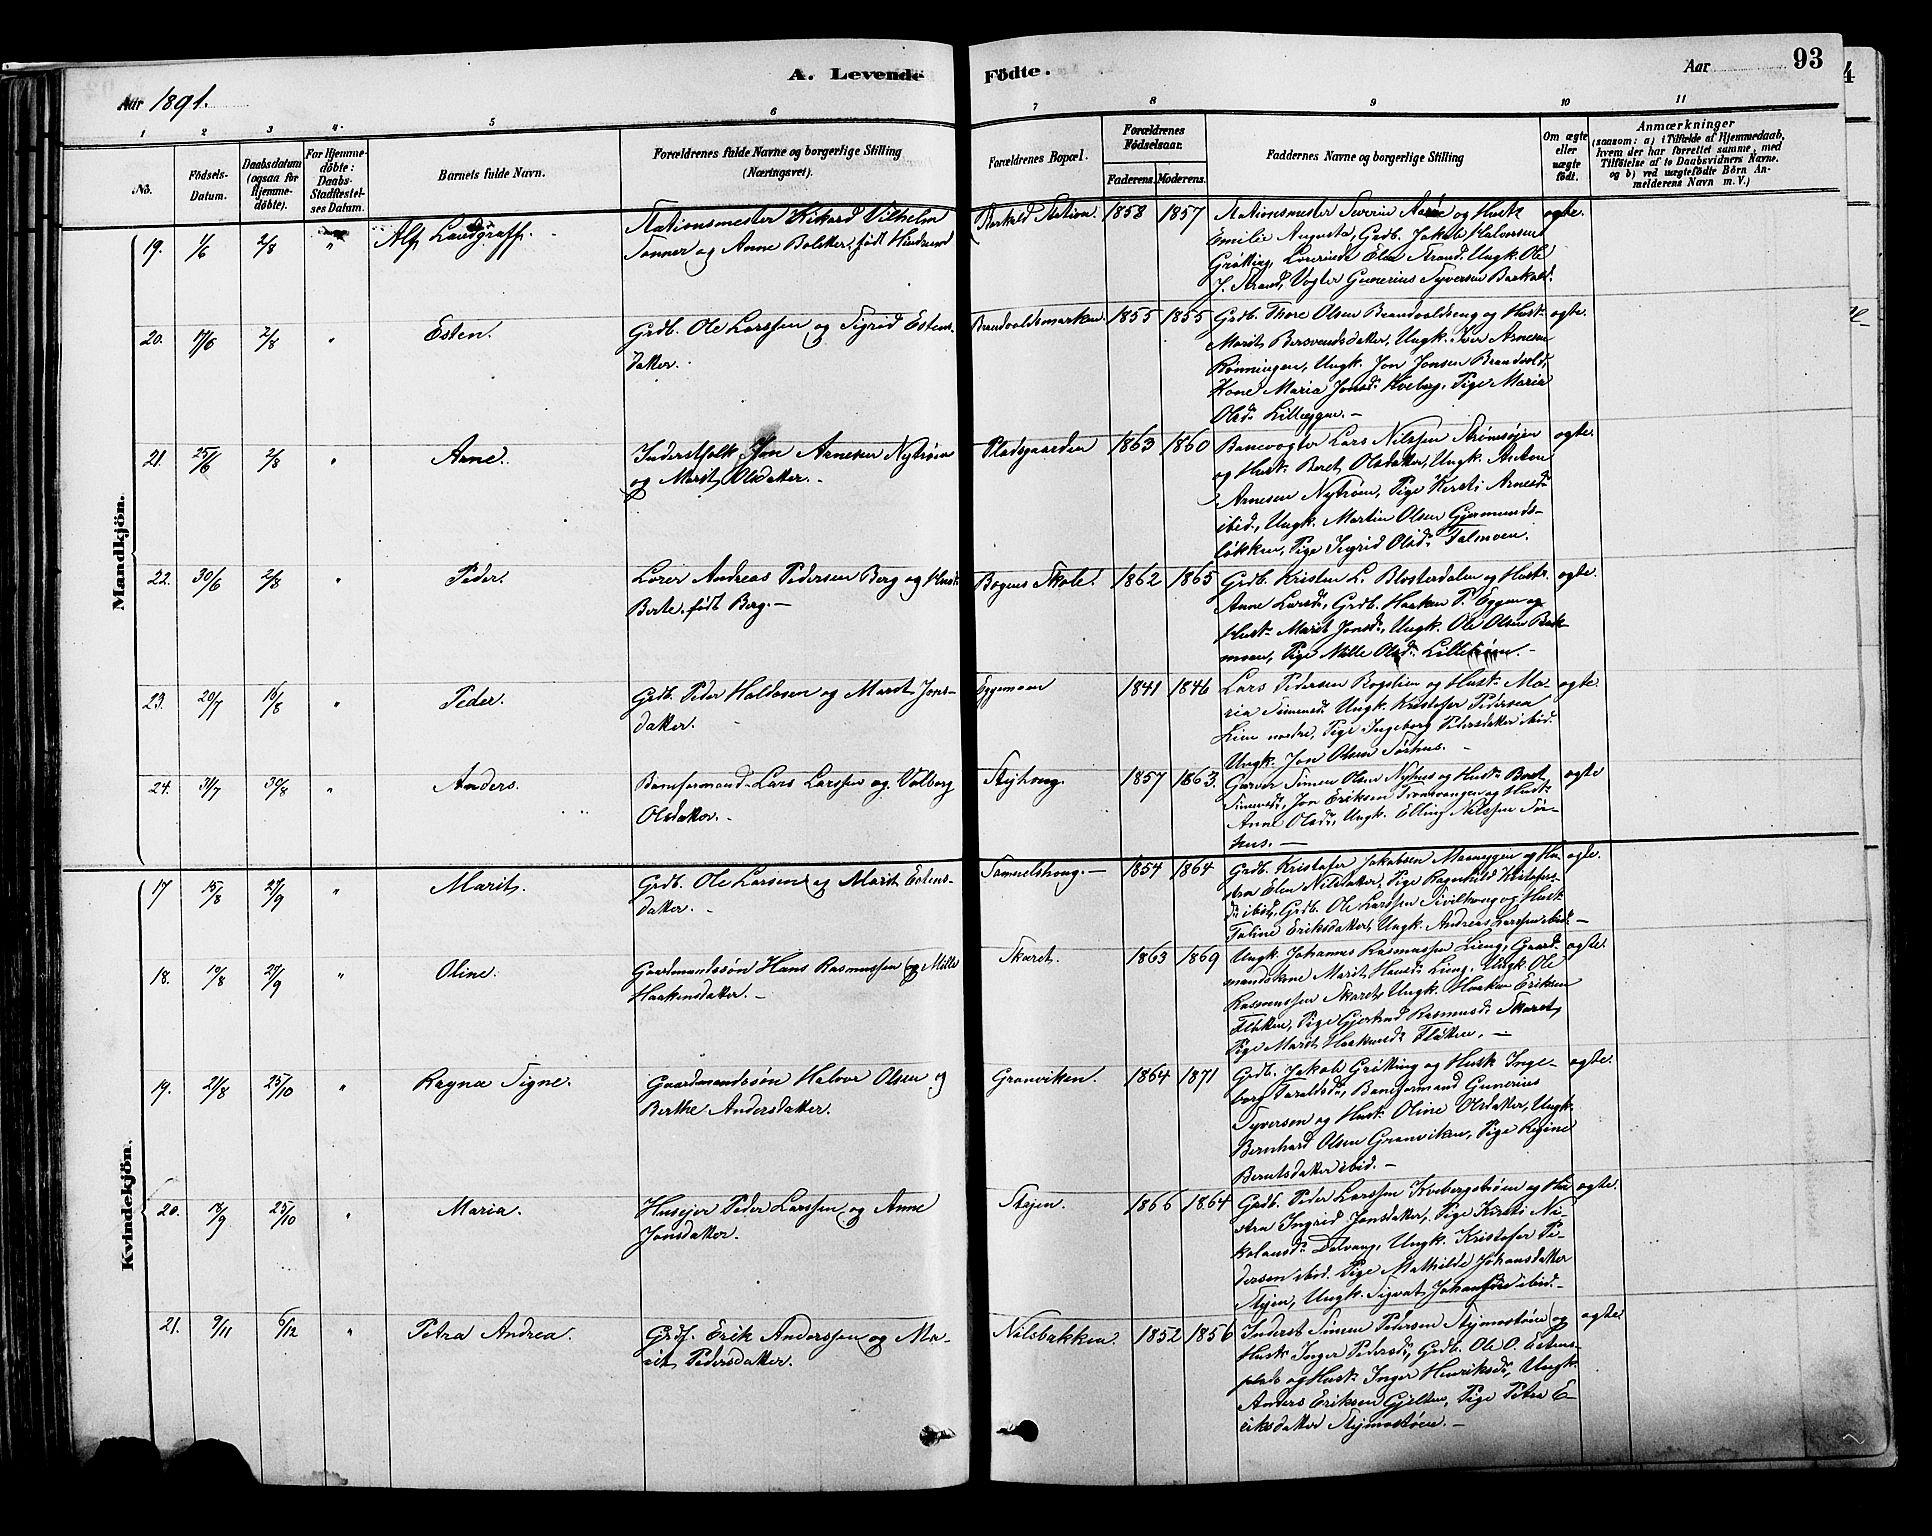 A. Levende Födte.
Aar 1891.
Aar 93
1 2 3 4. 5 6 7 8 9 10 11
No.
Födsels-Datum.
Daabsdatum (ogsaa for Hjemmedöbte).
For Hjemmedöbte: Daabs Stadfæstelses Datum.
Barnets fulde Navn.
Forældrenes fulde Navne og borgerlige Stilling (Næringsvei).
Forældrenes Bopæl.
Forældrenes Födselsaar.
Faderens. Moderens.
Faddernes Navne og borgerlige Stilling
Om ægte eller uægte födt.
Anmærkninger (saasom: a) i Tilfælde af Hjemmedaab, hvem der har forrettet samme, med Tilföielse af to Daabsvidners Navne. og b) ved uægtefödte Börn Anmelderens Navn m. V.)
Mandkjön.
19. 1/6 2/8 " Alf Landgraff.
Stationsmester Rikard Vilhelm
Tonner og Anne Bolette, født Hindrum
Barkald Station. 1858 1857
Stationsmester Severin Aarøe og Hustr.
Emilie Augusta, Grdb. Jakob Halvorsen
Grøtting, Lærerinde Elen Strand, Ungk. Ole
J. Strand, Vogter Gunerius Syversen Barkald.
ægte.
20. 17/6 2/8 " Esten.
Grdb. Ole Larssen og Sigrid Estens-
datter.
Brandvoldsmarken. 1855 1855
Grdb. Thore Olsen Brandvoldseng og Hust.
Marit Bersvendsdatter, Ungk. Iver Arnesen
Rønningen, Ungk. Jon Jonsen Brandvold,
Kone Maria Jonsd. Kveberg, Pige Maria
Olsd. Lilleeggen. -
ægte.
21. 25/6 2/8 " Arne.
Inderstfolk Jon Arnesen Nytrøen
og Marit Olsdatter. -
Pladsgaarden 1863 1860
Banevogter Lars Nilssen Strømsøien
og Hust. Beret Olsdatter, Ungk. Anton
Arnesen Nytrøen, Pige Kersti Arnesd.
ibid., Ungk. Martin Olsen Gjermunds-
løkken, Pige Sigrid Olsd. Talmoen.
ægte.
22. 30/6 2/8 " Peder.
Lærer Andreas Pedersen Berg og Hust.
Berte, født Berg. -
Bogens Skole. 1862 1865
Grdb. Kristen L. Blosterdalen og Hustr.
Anne Larsd., Grdb. Haaken P. Eggen og
Hust. Marit Jonsd., Ungk. Ole Olsen Bak-
moen, Pige Mille Olsd. Lilletrøen. -
ægte.
23. 20/7 16/8 " Peder.
Grdb. Peder Haldosen og Marit Jons-
datter.
Eggemoen 1841 1846
Lars Pedersen Bogelien og Hust. Ma-
ria Simensd. Ungk. Kristofer Pedersen
Lien nordre, Pige Ingeborg Pedersdatter ibid.
Ungk. Jon Olsen Sørhus. -
ægte
24. 31/7 30/8 " Anders.
Baneformand Lars Larssen og Valborg
Olsdatter. -
Steihaug. 1857 1863.
Garver Simen Olsen Nyhus og Hust. Beret
Simensd., Jon Eriksen Tronsvangen og Hustr.
Anne Olsd., Ungk. Elling Nilssen Sør-
hus. -
ægte
Kvindekjön.
17 15/8 27/9 " Marit.
Grdb. Ole Larsen og Marit Estens-
datter. -
Samuelshaug. - 1854 1864
Grdb. Kristofer Jakobsen Maaneggen og Hu-
stru Elen Nilsdatter, Pige Ragnhild Kristofers-
d. ibid., Grdb. Ole Larssen Sivilhaug og Hust.
Taline Eriksdatter, Ungk. Andreas Larssen ibid. -
ægte.
18. 19/8 27/9 " Oline.
Gaardmandssøn Hans Rasmussen og Mille
Haakensdatter. -
Skaret. 1863 1869
Ungk. Johannes Rasmussen Lieng, Gaard-
mandskone Marit Hansd. Lieng, Ungk. Ole
Rasmussen Skaret, Ungk. Haaken Eriksen
Fløtten, Pige Gjertrud Rasmusd. Skaret,
Pige Marit Haakensd. Fløtten. -
ægte.
19. 21/8 25/10 " Ragna Signe.
Gaardmandssøn Halvor Olsen og
Berthe Andersdatter.
Granviken. 1864 1871
Grdb. Jakob Grøtting og Hustr. Inge-
borg Taraldsd., Baneformand Gunerius
Syversen og Hust. Oline Olsdatter, Ungk.
Bernhard Olsen Granviken, Pige Regine
Berntsdatter ibid. -
ægte.
20. 18/9 25/10 " Maria.
Huseier Peder Larssen og Anne
Jonsdatter.
Steien. 1866 1864
Grdb. Peder Larssen Kvebergstrøen og Hu-
stru Ingrid Jonsdatter, Pige Kirsti Ni-
kolausd. Dalvang, Ungk. Kristofer Pe-
dersen ibid. Pige Mathilde Johansdatter
Steien, Ungk. Sigvat Johansen ibid. -
ægte.
21. 9/11 6/12 " Petra Andrea.
Grdf. Erik Anderssen og Ma-
rit Pedersdatter.
Nilsbakken. 1852 1856
Inderst Simen Pedersen Steimostøen og
Hustr. Inger Pedersd., Grdb. Ole O. Estens-
plads og Hust. Inger Henriksd., Ungk.
Anders Eriksen Gjelten, Pige Petra E-
riksdatter Steimostøen. -
ægte.